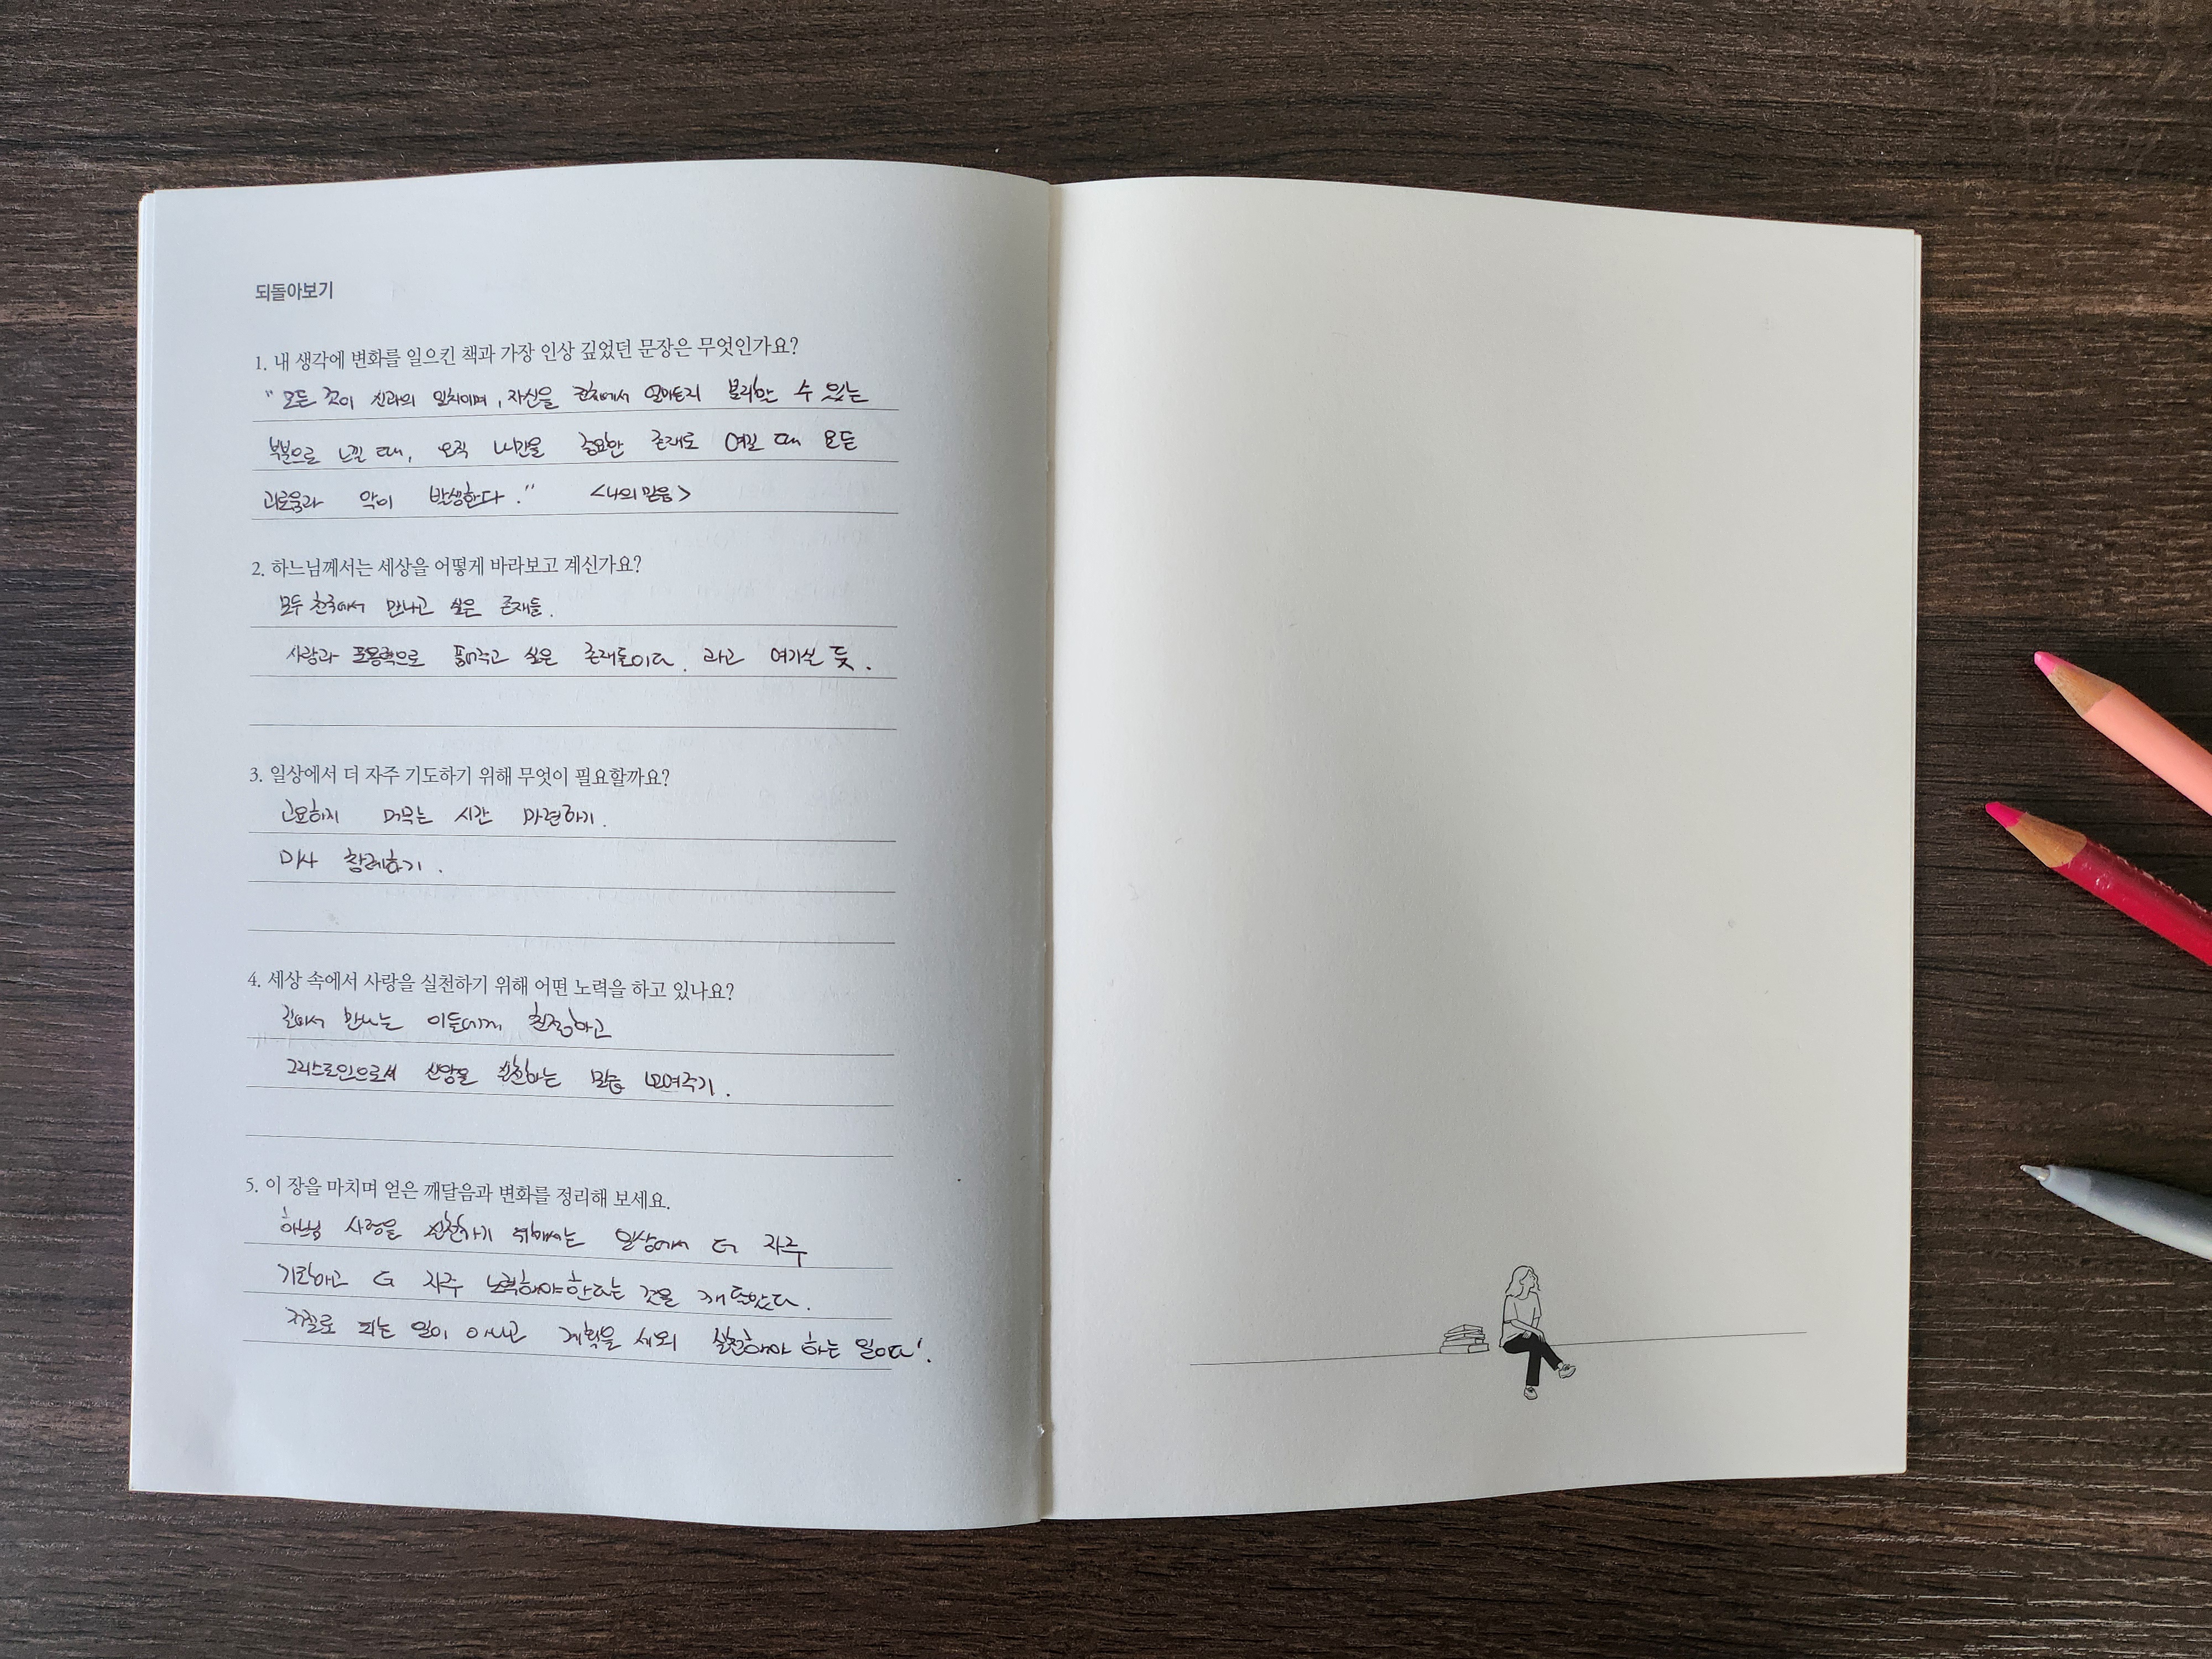 되돌아보기
1. 내 생각에 변화를 일으킨 책과 가장 인상 깊었던 문장은 무엇인가요?
"모든 것이 신과의 일치이며, 자신을 전체에서 얼마든지 분리할 수 있는
부분으로 느낄 때, 오직 나만을 중요한 존재로 여길 때 모든
괴로움과 악이 발생한다." <나의 믿음>
2. 하느님께서는 세상을 어떻게 바라보고 계신가요?
모두 천국에서 만나고 싶은 존재들.
사랑과 포용력으로 품어주고 싶은 존재들이다. 라고 여기실 듯.
3. 일상에서 더 자주 기도하기 위해 무엇이 필요할까요?
고요하게 머무는 시간 마련하기.
미사 참례하기.
4. 세상 속에서 사랑을 실천하기 위해 어떤 노력을 하고 있나요?
길에서 만나는 이들에게 친절하고
그리스도인으로서 신앙을 실천하는 모습 보여주기.
5. 이 장을 마치며 얻은 깨달음과 변화를 정리해 보세요.
하느님 사랑을 실천하기 위해서는 일상에서 더 자주
기도하고 더 자주 노력해야 한다는 것을 깨달았다.
저절로 되는 일이 아니고 계획을 세워 실천해야 하는 일이다!.